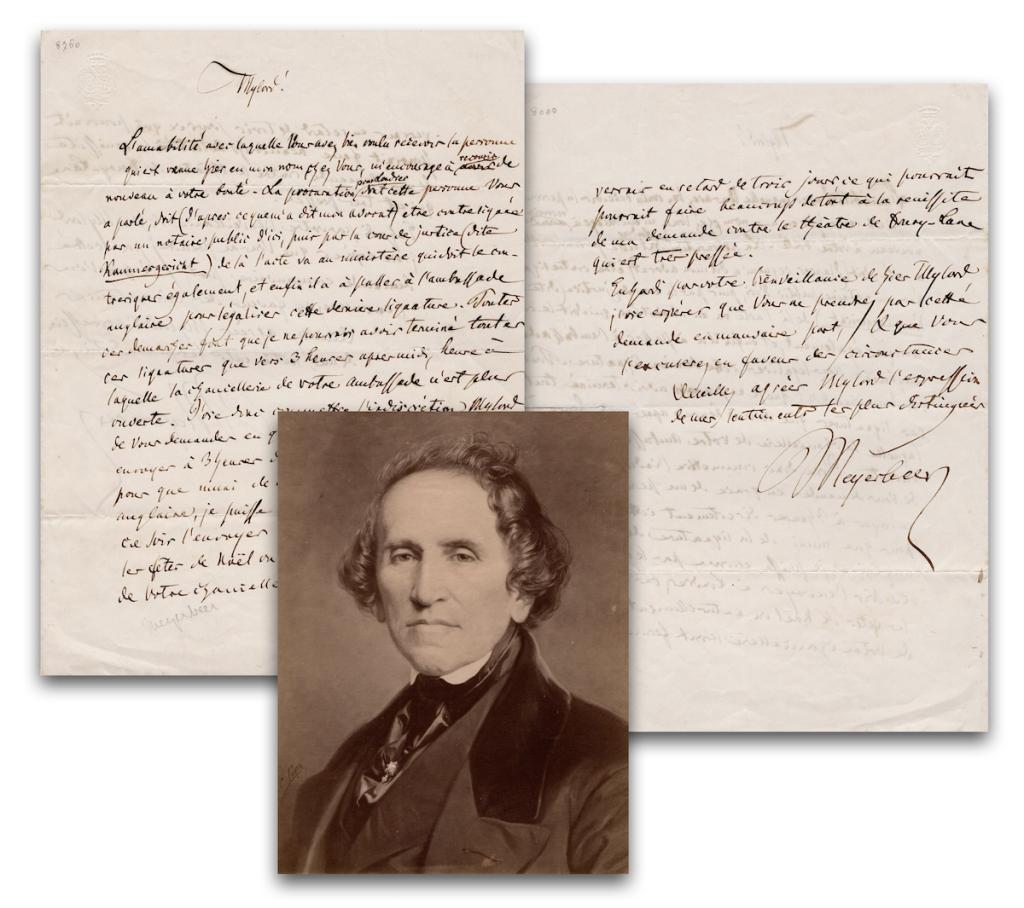 8760
Mylord!
L'amabilité avec laquelle Vous avez bien voulu recevoir la personne
qui est venue hier en mon nom chez Vous, m'encourage à recourir de
nouveau à votre bonté. La procuration pour Londres dont cette personne Vous
a parlé, doit (d'après ce que m'a dit mon avocat) être contresignée
par un notaire public d'ici, puis par la cour de justice (dite
Kammergericht) de là l'acte va au ministère qui doit le con-
tresigner également, et enfin il a à passer à l'ambassade
anglaise pour légaliser cette dernière signature. Toutes
ces demarches font que je ne pourrois avoir terminé toutes
ces signatures que vers 3 heures apres midi, heure à
laquelle la chancellerie de votre ambassade n'est plus
ouverte. J'ose donc commettre l'indiscrétion, Mylord
de Vous demander en
envoyer à 3 heures
pour que muni de
anglaise, je puisse
ce soir l'envoyer
les fêtes de Noël ou
de Votre chancelle
Meyerbeer
8000
verroit en retard de trois jours ce qui pourrait
pourrait faire beaucoup de tort à la reussite
de ma demande contre le théatre de Drury-Lane
qui est tres pressée.
Enhardi par votre bienveillance de hier Mylord
j'ose espérer que Vous ne prendrez pas cette
demande en mauvaise part, & que Vous
l'excuserez en faveur des circonstances
Veuillez agréer Mylord l'expression
de mes sentiments les plus distingués
Meyerbeer